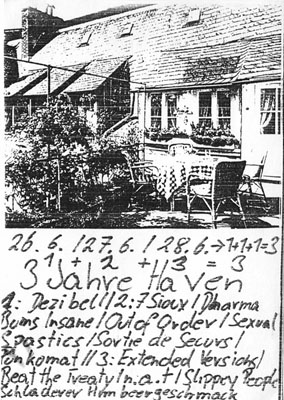 26.6./27.6./28.6.→1+1+1=3
1 + 2 + 3 = 3
3 Jahre Haven
1: Dezibel//2:7 Sioux/Dharma
Bums Insane/Out of Order/Sexual
Spastics/Sortie de Securs/
Punkomat//3: Extended Versions/
Beat the Treaty/n.a.t/Slippery People
Schladerer Himbeergeschmack